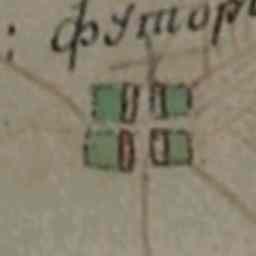 : футор